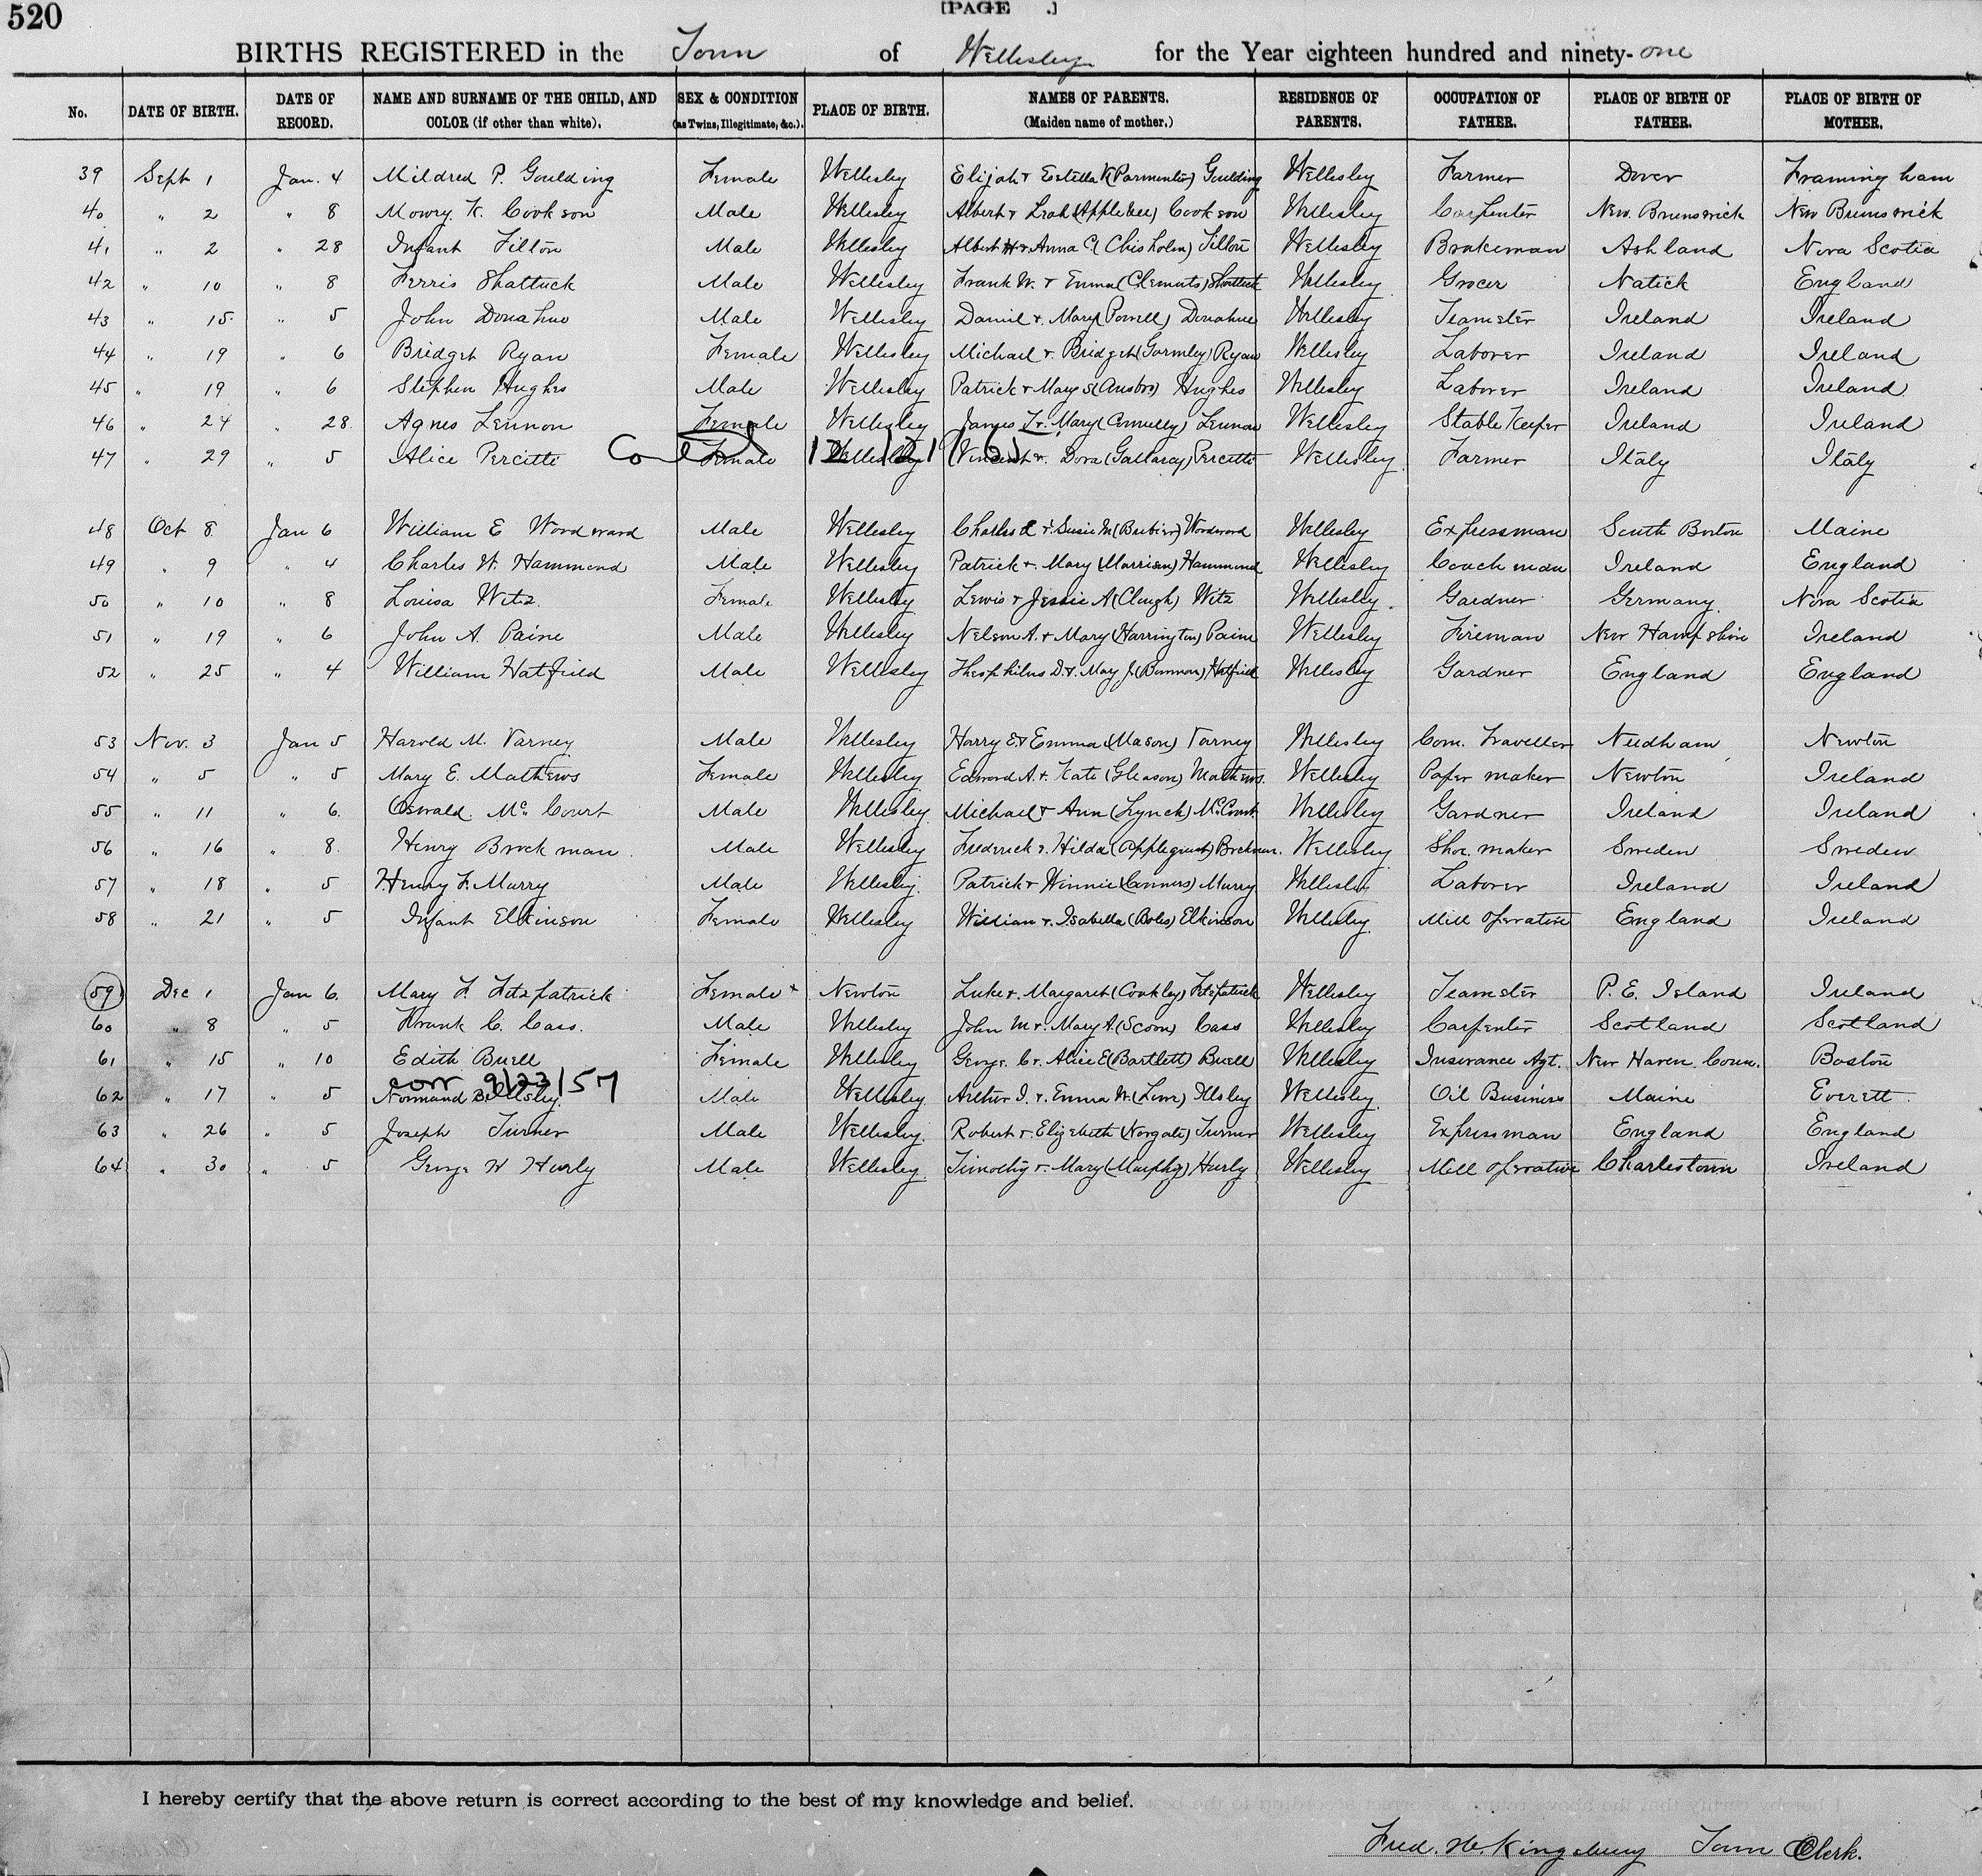 520
[PAGE .]
BIRTHS REGISTERED in the Town of Wellesley for the Year eighteen hundred and ninety-one
No. DATE OF BIRTH. DATE OF RECORD. NAME AND SURNAME OF THE CHILD, AND COLOR (if other than white). SEX & CONDITION (as Twins, Illegitimate, &c.). PLACE OF BIRTH. NAMES OF PARENTS. (Maiden name of mother.) RESIDENCE OF PARENTS. OCCUPATION OF FATHER. PLACE OF BIRTH OF FATHER. PLACE OF BIRTH OF MOTHER.
39 Sept 1 Jan. 4 Mildred P. Goulding Female Wellesley Elijah & Estella K (Parmenter) Goulding Wellesley Farmer Dover Framingham
40 " 2 " 8 Mowry K. Cookson Male Wellesley Albert & Leah (Applebee) Cookson Wellesley Carpenter New Brunswick New Brunswick
41 " 2 " 28 Infant Tilton Male Wellesley Albert H & Anna C (Chisholm) Tilton Wellesley Brakeman Ashland Nova Scotia
42 " 10 " 8 Ferris Shattuck Male Wellesley Frank W. & Emma (Clements) Shattuck Wellesley Grocer Natick England
43 " 15 " 5 John Donahue Male Wellesley Daniel & Mary (Powell) Donahue Wellesley Teamster Ireland Ireland
44 " 19 " 6 Bridget Ryan Female Wellesley Michael & Bridget (Gormley) Ryan Wellesley Laborer Ireland Ireland
45 " 19 " 6 Stephen Hughes Male Wellesley Patrick & Mary S (Ansbro) Hughes Wellesley Laborer Ireland Ireland
46 " 24 " 28 Agnes Lennon Female Wellesley James T & Mary (Connelly) Lennon Wellesley Stable Keeper Ireland Ireland
47 " 29 " 5 Alice Percitte Female Wellesley Vincent & Dora (Gallarcy) Percitte Wellesley Farmer Italy Italy
48 Oct 8 Jan 6 William E Woodward Male Wellesley Charles & Susie M (Barbier) Woodward Wellesley Expressman South Boston Maine
49 " 9 " 4 Charles W. Hammond Male Wellesley Patrick & Mary (Morrison) Hammond Wellesley Coachman Ireland England
50 " 10 " 8 Louisa Witz. Female Wellesley Lewis & Jessie A (Clough) Witz Wellesley Gardner Germany Nova Scotia
51 " 19 " 6 John A. Paine Male Wellesley Nelson A. & Mary (Harrington) Paine Wellesley Fireman New Hampshire Ireland
52 " 25 " 4 William Hatfield Male Wellesley Theophilus D. & Mary J. (Bannon) Hatfield Wellesley Gardner England England
53 Nov. 3 Jan 5 Harold M. Varney Male Wellesley Harry E & Emma (Mason) Varney Wellesley Com. Traveller Needham Newton
54 " 5 " 5 Mary E. Mathews Female Wellesley Edward A. & Kate (Gleason) Mathews Wellesley Paper maker Newton Ireland
55 " 11 " 6. Oswald Mc Court Male Wellesley Michael & Ann (Lynch) McCourt Wellesley Gardner Ireland Ireland
56 " 16 " 8. Henry Brockman Male Wellesley Frederick & Hilda Wellesley Shoe maker Sweden Sweden
57 " 18 " 5 Henry F. Murry Male Wellesley Patrick & Winnie (Conners) Murry Wellesley Laborer Ireland Ireland
58 " 21 " 5 Infant Elkinson Female Wellesley William & Isabella (Boles) Elkinson Wellesley Mill operative England Ireland
59 Dec 1 Jan 6. Mary F. Fitzpatrick Female Newton Luke & Margaret (Coakley) Fitzpatrick Wellesley Teamster P. E. Island Ireland
60 " 8 " 5 Frank C. Cass. Male Wellesley John M & Mary A. (Scoon) Cass Wellesley Carpenter Scotland Scotland
61 " 15 " 10 Edith Buell Female Wellesley George C & Alice E (Bartlett) Buell Wellesley Insurance Agt. New Haven Conn. Boston
corr 9/23/57
62 " 17 " 5 Normand Male Wellesley Arthur I. & Emma W. (Lowe) Illsley Wellesley Oil Business Maine Everett
63 " 26 " 5 Joseph Turner Male Wellesley Robert & Elizabeth (Norgate) Turner Wellesley Expressman England England
64 " 30 " 5 George W Hurly Male Wellesley Timothy & Mary (Murphy) Hurly Wellesley Mill operative Charlestown Ireland
I hereby certify that the above return is correct according to the best of my knowledge and belief.
Fred. W. Kingsbury Town Clerk.